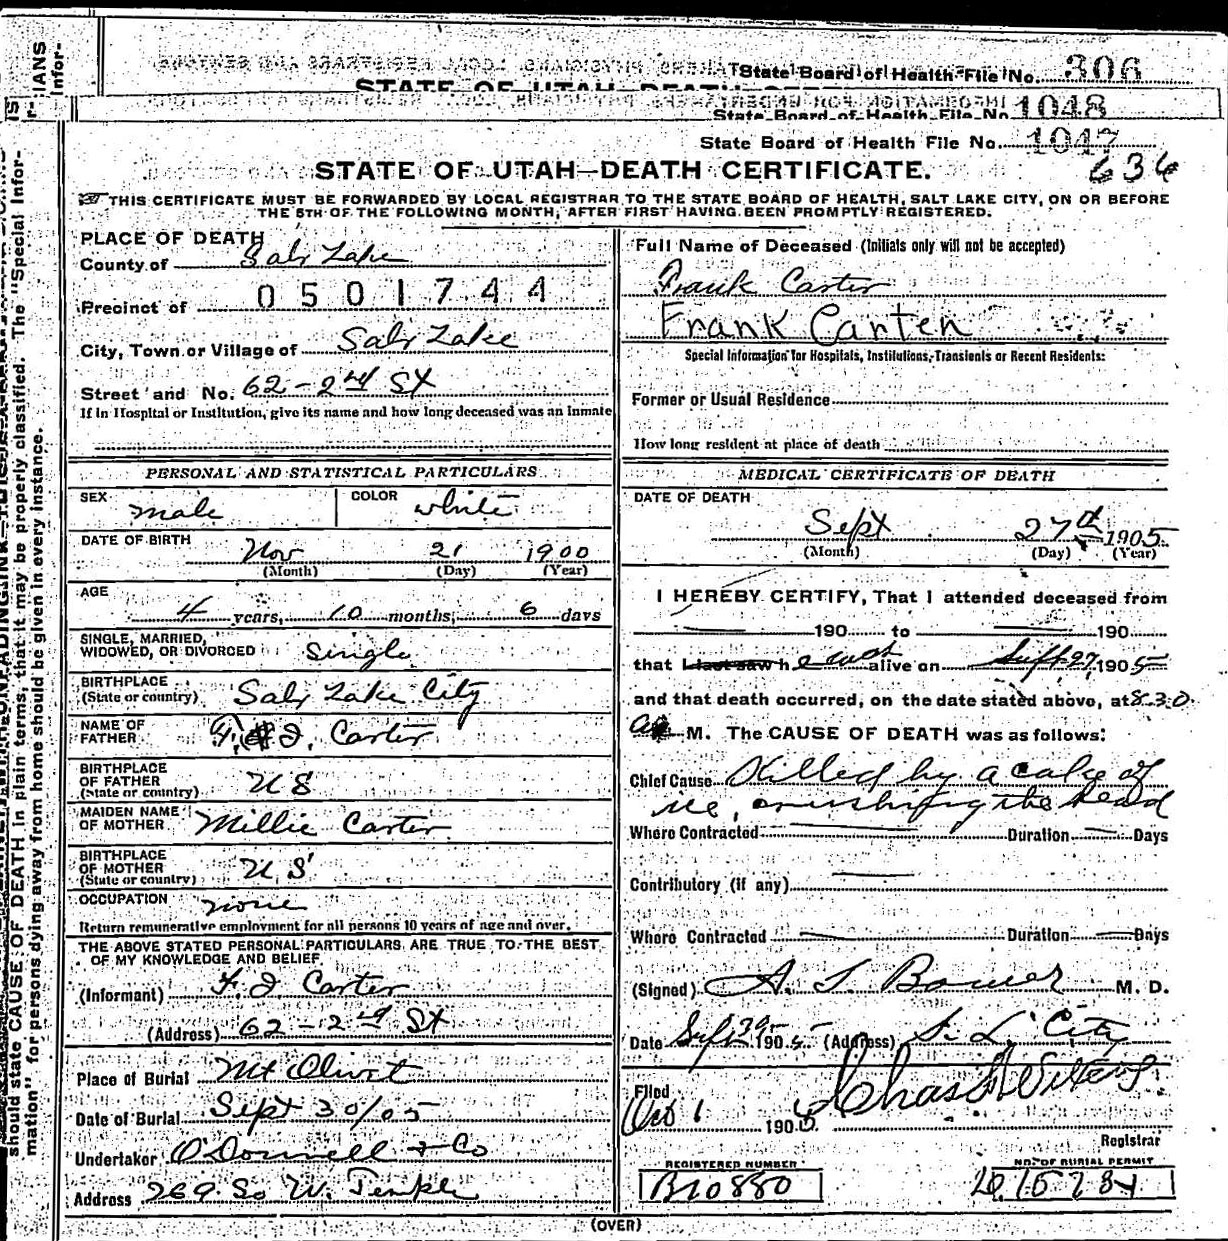 IANS
Infor-
State Board of Health File No. 306
STATE OF UTAH—DEATH
State Board of Health File No 1048
State Board of Health File No. 1047
636
STATE OF UTAH—DEATH CERTIFICATE.
THIS CERTIFICATE MUST BE FORWARDED BY LOCAL REGISTRAR TO THE STATE BOARD OF HEALTH, SALT LAKE CITY, ON OR BEFORE
THE 5TH OF THE FOLLOWING MONTH, AFTER FIRST HAVING BEEN PROMPTLY REGISTERED.
should state CAUSE OF DEATH in plain terms, that it may be properly classified. The "Special Infor-
mation" for persons dying away from home should be given in every instance.
PLACE OF DEATH
County of Salt Lake
Precinct of 0501744
City, Town or Village of Salt Lake
Street and No. 62 - 2nd St
If in Hospital or Institution, give its name and how long deceased was an inmate
PERSONAL AND STATISTICAL PARTICULARS
SEX male COLOR white
DATE OF BIRTH Nov 21 1900
(Month) (Day) (Year)
AGE
4 years, 10 months, 6 days
SINGLE, MARRIED,
WIDOWED, OR DIVORCED single
BIRTHPLACE
(State or country) Salt Lake City
NAME OF
FATHER F. J. Carter
BIRTHPLACE
OF FATHER
(State or country) U S
MAIDEN NAME
OF MOTHER Millie Carter
BIRTHPLACE
OF MOTHER
(State or country) U.S
OCCUPATION none
Return remunerative employment for all persons 10 years of age and over.
THE ABOVE STATED PERSONAL PARTICULARS ARE TRUE TO THE BEST
OF MY KNOWLEDGE AND BELIEF
(Informant) F. J. Carter
(Address) 62 - 2nd St
Place of Burial Mt Olivet
Date of Burial Sept 30/05
Undertaker O'Donnell & Co
Address 269 So W. Temple
Full Name of Deceased (Initials only will not be accepted)
Frank Carter
Frank Carter
Special Information for Hospitals, Institutions, Transients or Recent Residents:
Former or Usual Residence
How long resident at place of death
MEDICAL CERTIFICATE OF DEATH
DATE OF DEATH
Sept 27th 1905
(Month) (Day) (Year)
I HEREBY CERTIFY, That I attended deceased from
190 to 190
that I last saw h e was alive on Sept 27, 1905
and that death occurred, on the date stated above, at 8.30
a M. The CAUSE OF DEATH was as follows:
Chief Cause Killed by a cake of
ice, crushing the head
Where Contracted Duration Days
Contributory (if any)
Where Contracted Duration Days
(Signed) A. J. Bower M. D.
Date Sept 1905 (Address) S. L. City
Filed
Oct 1 1905 Chas
Registrar
REGISTERED NUMBER
B10880
NO. OF BURIAL PERMIT
(OVER)